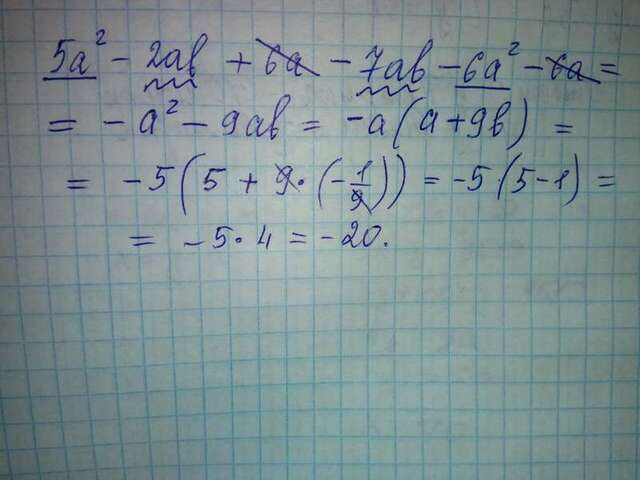 5a² - 2ab + 6a - 7ab - 6a² - 6a =
= -a² - 9ab = -a(a + 9b) =
= -5(5 + 9·(-1/9)) = -5(5-1) =
= -5·4 = -20.